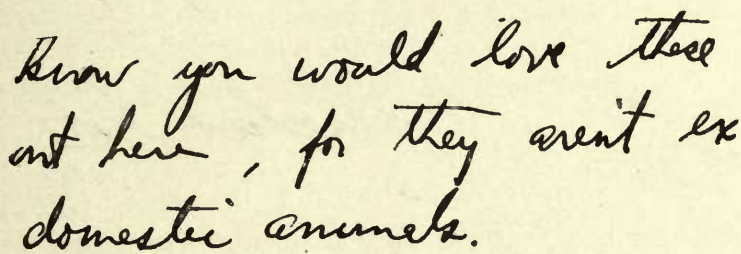 know you would love these
out here, for they aren't ex
domestic animals.